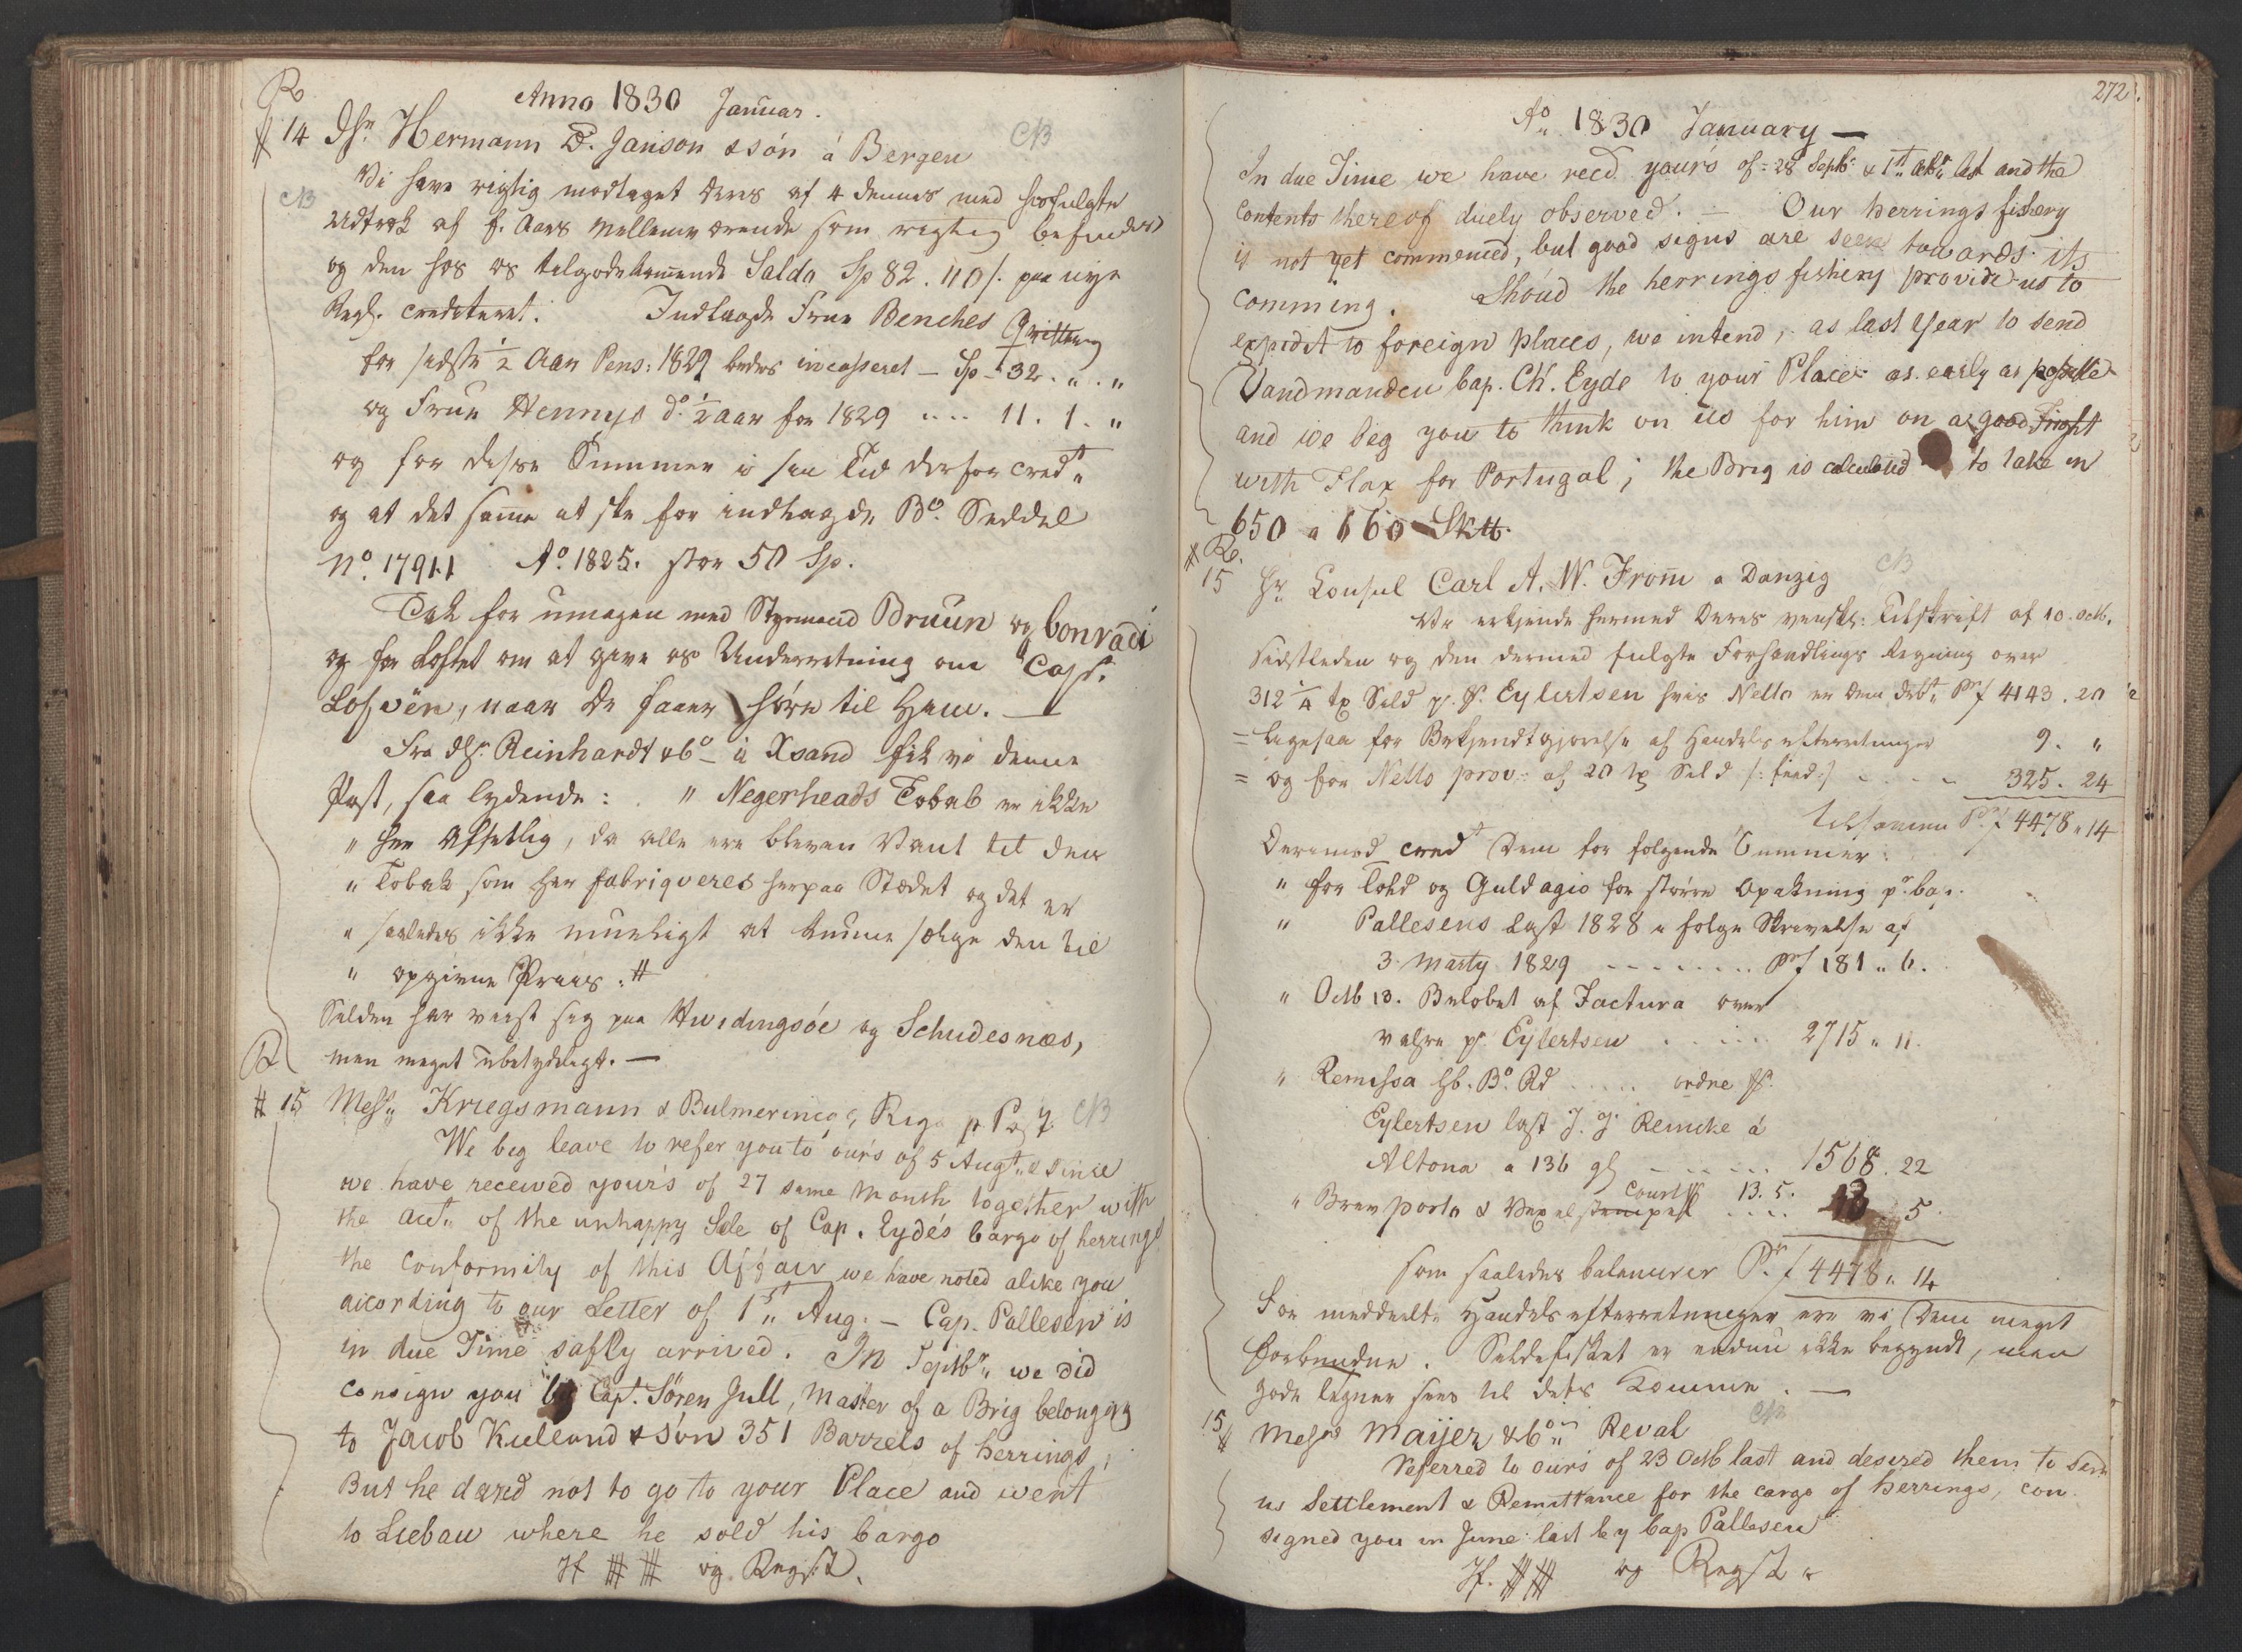 Anno 1830 Januar.
14 Hr. Hermann D. Janson & søn á Bergen
Vi have rigtig modtaget Deres af 4 dennes med hosfulgte
Udtræk af f. Aars Mellemværende som rigtig befindes
og den hos os tilgodekommende Saldo Sp 82. 110/. paa nye
Regl. crediteret. Indlagde Frue Benches Qvittering
for sidste 1/2 Aar Pens: 1829 bedes incasseret - Sp 32. " . "
og Frue Hennyes do. 1/2 aar for 1829 .... 11. 1. "
og for disse Summer i sin Tid derfor credt.
og at det samme at ske for indlagde Bo. Seddel
No. 17911 Ao. 1825. stor 50 Sp.
Tak for umagen med Styrmand Bruun og Conradi
og for Løftet om at give os Underretning om Capt.
Lofvën, naar De faaer høre til Ham. —
Fra dHr. Reinhardt & Co - á Xsand fik vi denne
Post, saa lydende: " Negerheads Tobak er ikke
" her afsetlig, da alle ere bleven Vant til den
" Tobak som her fabriqveres herpaa Stædet og det er
" saaledes ikke mueligt at kunne sælge den til
" opgivne Priis.
Silden har viist sig paa Hvidingsöe og Schudesnæs,
men meget ubetydeligt. —
15 Messrs Kriegsmann & Bulmerincq, Riga p Post
We beg leave to refer you to our's of 5 Augt. & since
we have received your's of 27 same Month together with
the act. of the unhappy Sale of Cap. Eyde's Cargo of herrings
the Conformity of this Affair we have noted alike you
according to our Letter of 1st Aug. - Cap. Pallesen is
in due Time safly arrived. In Septbr. we did
consign you by Capt. Sören Jull, Master of a Brig belonging
to Jacob Kielland & Sön 351 Barrels of herrings,
But he dared not to go to your Place and went
to Liebau where he sold his Cargo
og Regst.
272.
Ao. 1830 January —
In due Time we have recd. your's of 28 Septbr. & 1st Octbr. last and the
Contents thereof duely observed. — Our herrings fishery
is not yet commenced, but good signs are seen towards its
comming. Shou'd the herrings fishery provide us to
expedit to foreign places, we intend, as last Year to send
Vandmanden Cap. Ch. Eyde to your Place as early as possible
and we beg you to think on us for him on a good Fright
with Flax for Portugal; the Brig is calculated to take in
650 a 660 Sk℔.
15 Hr. Consul Carl A. W. Fromm a Danzig
Vi erkjende hermed Deres venskl. Tilskrift af 10. Octb.
Sidstleden og den dermed fulgte Forhandlings Regning over
312 1/4 tr Sild pr. S. Eylertsen hvis Netto er Dem debt. Pr f 4143. 20
= ligesaa for Bekjendtgjørelse af Handels efterretninger 9. "
= og for Netto prov. af 20 tr Sild 325. 24
tilsamen Pr. f 4478 " 14
Derimod credt Dem for følgende Summer:
" for Told og Guldagio for større Opakning pr. Cap.
" Pallesens Last 1828 i følge Skrivelse af
3 Marty 1829 ........ Pr f 181 " 6.
" Octb 13. Beløbet af Factura over
Vahre pr Eylertsen ..... 2715 " 11.
" Remissa Hb. Bo. Rd ..... ordre S.
Eylertsen last J. J. Reincke á
Altona a 136 gl ...... 1568. 22
" Brevporto & Vexelstempel Court 13. 5. .... 13 5
som saaledes balancerer Pr. f 4478 " 14
For meddeelte Handelsefterretninger ere vi Dem meget
forbundne. Sildefisket er endnu ikke begyndt, men
gode tegner sees til dets Komme. —
15 Messrs Maijer & Co. Reval
referred to our's of 23 Octb last and desired them to send
us Settlement & Remittance for the cargo of herrings, con
signed you in June last by Cap Pallesen
og Regst.